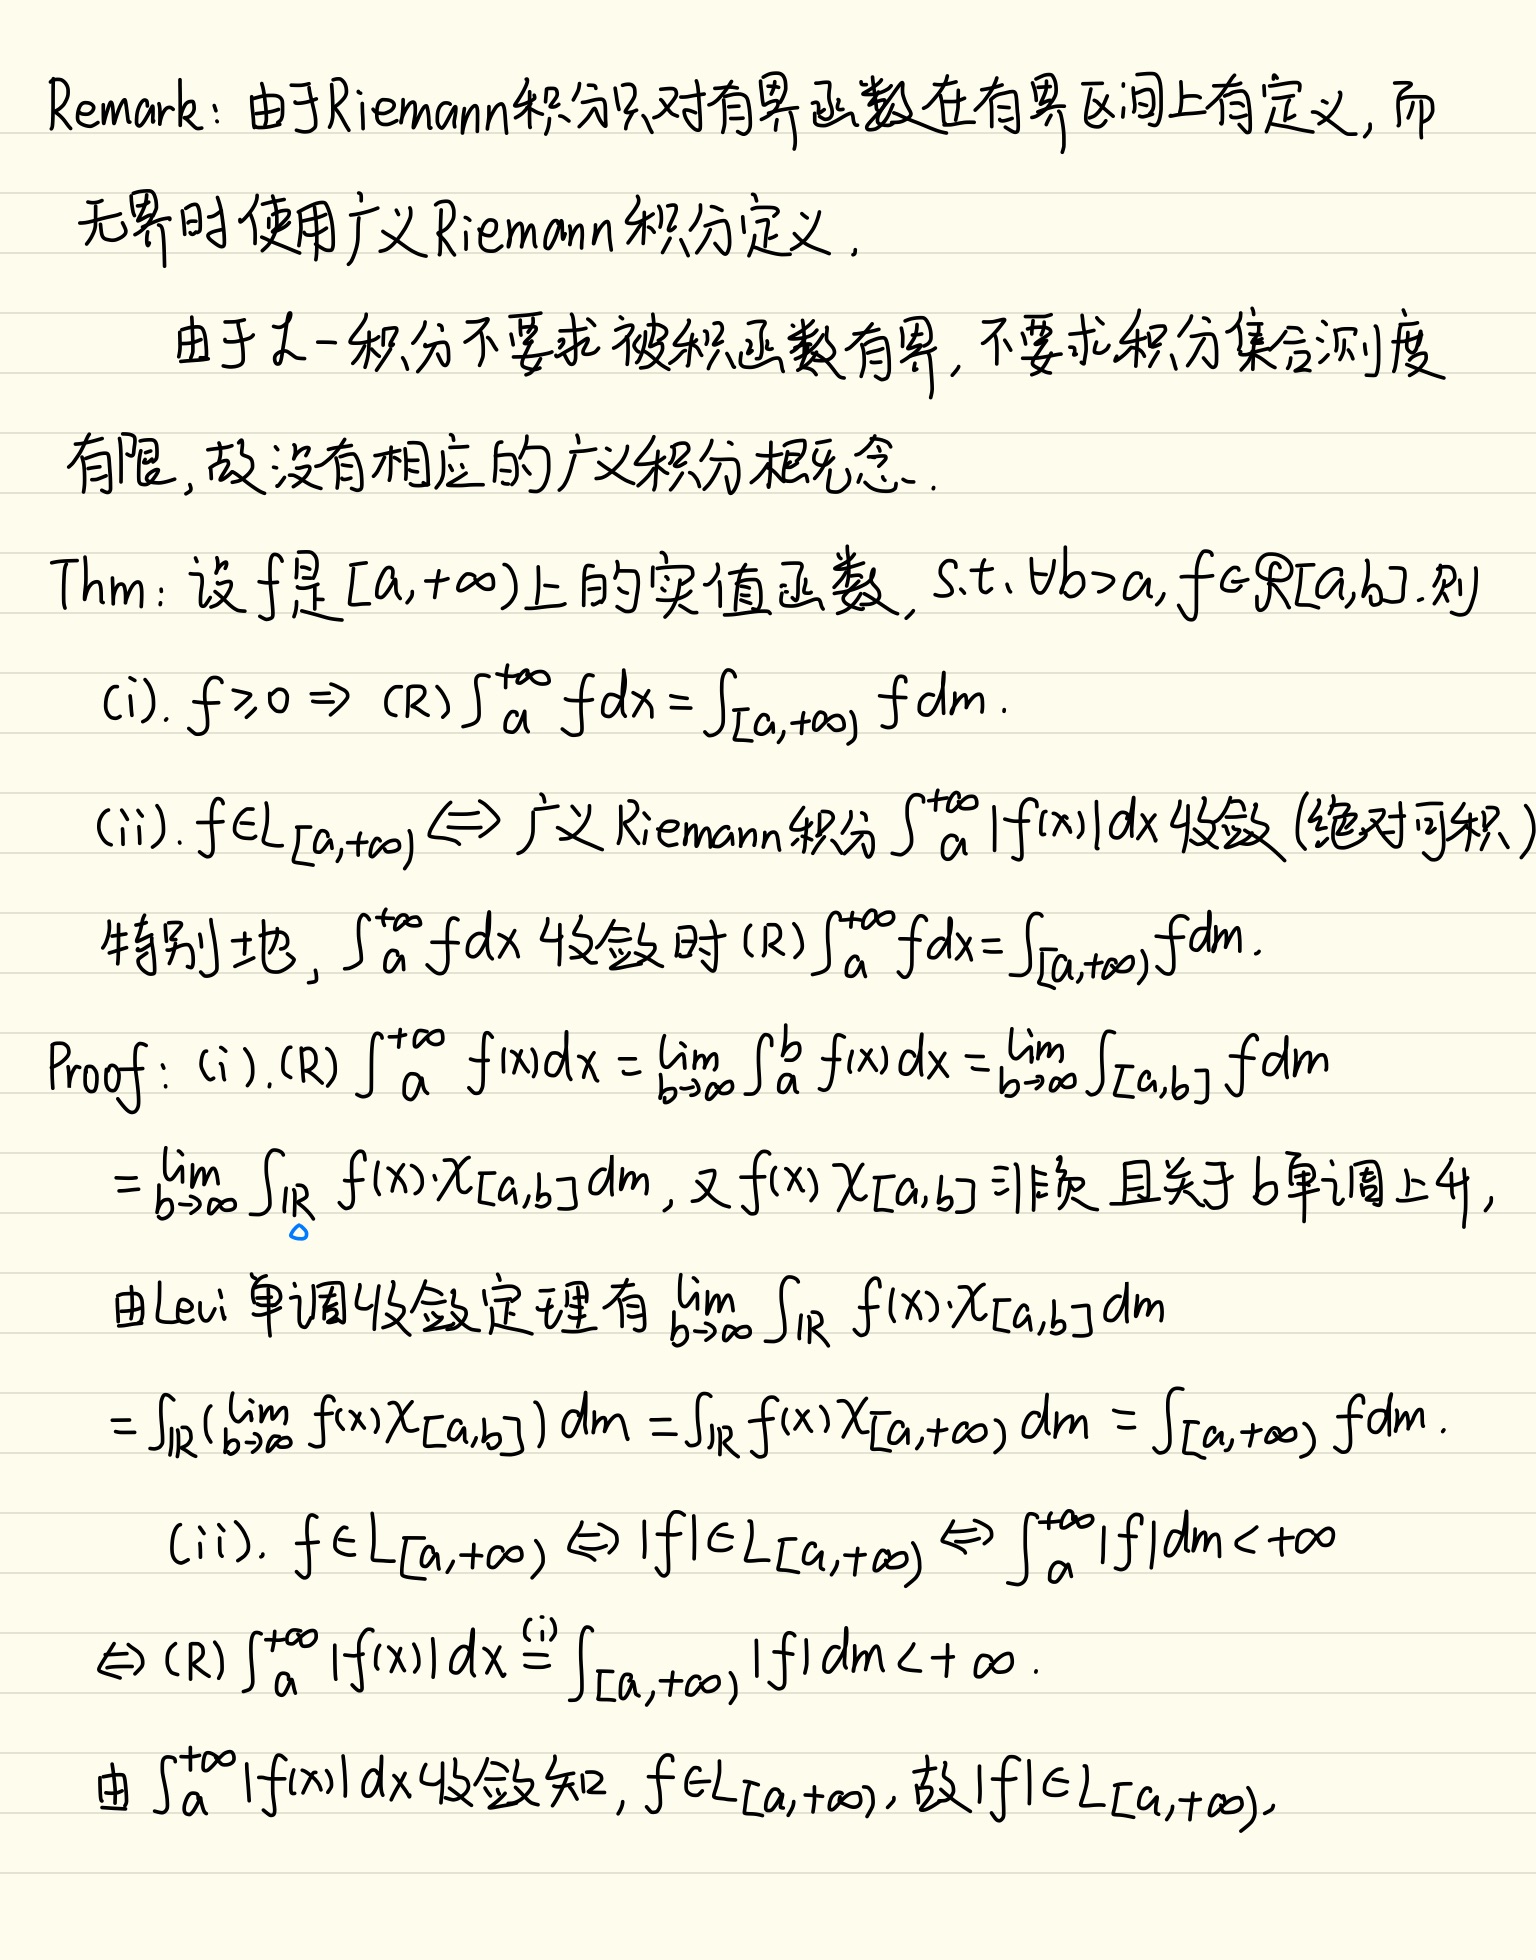 Remark: 由于Riemann积分只对有界函数在有界区间上有定义, 而
无界时使用广义Riemann积分定义.
由于L-积分不要求被积函数有界, 不要求积分集合测度
有限, 故没有相应的广义积分概念.
Thm: 设f是[a,+∞)上的实值函数, s.t. ∀b>a, f∈ℛ[a,b]. 则
(i). f≥0 ⇒ (R)∫_a^{+∞} fdx = ∫_{[a,+∞)} fdm.
(ii). f∈L_{[a,+∞)} ⇔ 广义Riemann积分∫_a^{+∞} |f(x)|dx收敛(绝对可积)
特别地, ∫_a^{+∞} fdx 收敛时(R)∫_a^{+∞} fdx=∫_{[a,+∞)} fdm.
Proof: (i).(R)∫_a^{+∞} f(x)dx = lim_{b→∞} ∫_a^b f(x)dx = lim_{b→∞} ∫_{[a,b]} fdm
= lim_{b→∞} ∫_ℝ f(x)·χ_{[a,b]}dm, 又f(x)χ_{[a,b]}非负且关于b单调上升,
由Levi单调收敛定理有 lim_{b→∞} ∫_ℝ f(x)·χ_{[a,b]}dm
= ∫_ℝ(lim_{b→∞} f(x)χ_{[a,b]})dm = ∫_ℝ f(x)χ_{[a,+∞)}dm = ∫_{[a,+∞)} fdm.
(ii). f∈L_{[a,+∞)} ⇔ |f|∈L_{[a,+∞)} ⇔ ∫_a^{+∞} |f|dm<+∞
⇔ (R)∫_a^{+∞} |f(x)|dx \overset{(i)}{=} ∫_{[a,+∞)} |f|dm<+∞.
由∫_a^{+∞} |f(x)|dx收敛知, f∈L_{[a,+∞)}, 故|f|∈L_{[a,+∞)},